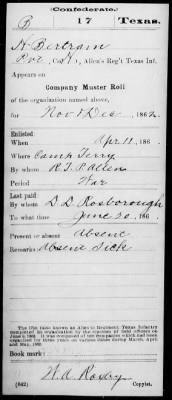 (Confederate.)
B 17 Texas.
H Bertram
Pvt, Co. K, Allen's Reg't Texas Inf.
Appears on
Company Muster Roll
of the organization named above,
for Nov & Dec, 1862.
Enlisted:
When Apr 11, 186
Where Camp Terry
By whom R. T. P. Allen
Period War
Last paid:
By whom D. D. Rosborough
To what time June 30, 186
Present or absent Absent
Remarks: Absent Sick
The 17th (also known as Allen's) Regiment Texas Infantry
Book mark:
(642) Copyist.